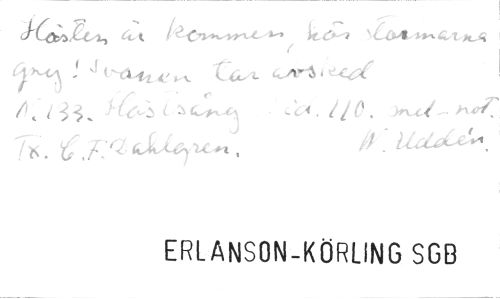 Hösten är kommen, hör stormarna
gny! Svanen tar avsked
N. 133. Höstsång sid. 110. mel-not.
Tx. C. F. Dahlgren. W. Uddén.
ERLANSON-KÖRLING SGB